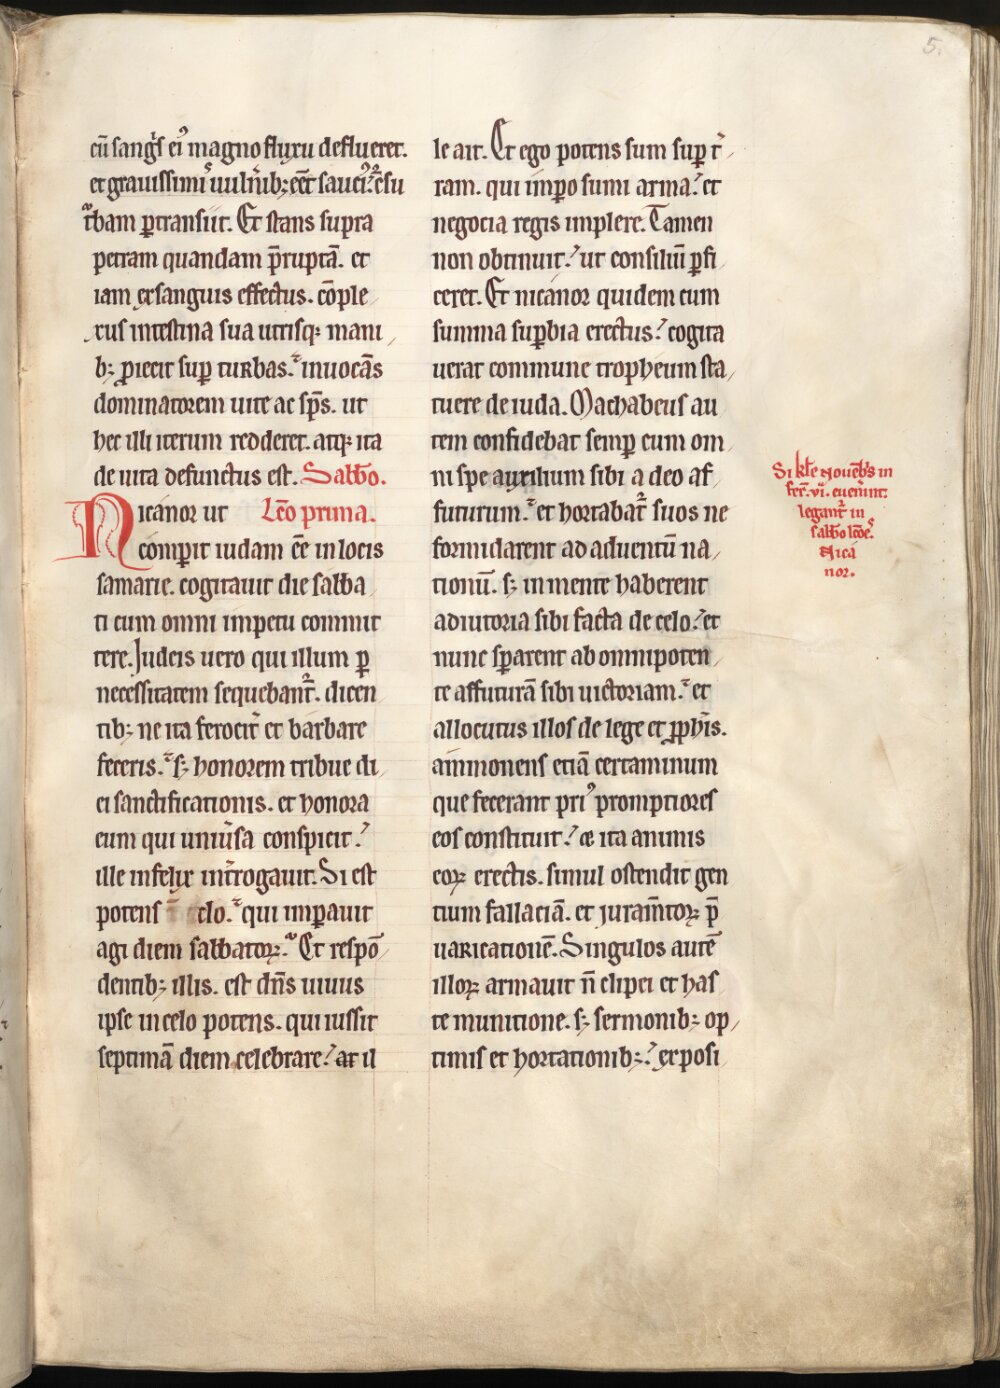 5.
cū sang̓s ei᷒ magno fluxu deflueret.
et grauissimis uulnib; eēt sauci᷒. cͥsu
tͣbam ꝑtransiit. Et stans supra
petram quandam p̄ruptā. et
iam exsanguis effectus. cōple
xus intestina sua utrisqꝫ mani
b; ꝓiecit suꝑ turbas. inuocās
dominatorem uite ac sp̄s. ut
hec illi iterum redderet. atqꝫ ita
de uita defunctus est. Sabb̄o.
Nicánor ut Lc̄o prima.
comꝑit iudam ēē in locis
samarie. cogitauit die sabba
ti cum omni impetu commit
tere. Judeis uero qui illum ꝑ
necessitatem sequebant᷑. dicen
tib; ne ita ferocit̓ et bárbare
feceris. sꝫ honorem tribue di
ei sanctificationis. et honora
eum qui uniu̓sa conspicit.
ille infelix int̓rogauit. Si est
potens ī celo. qui imꝑauit
agi diem sabbatoꝝ. Et respō
dentib; illis. est dn̄s uiuus
ipse in celo potens. qui iussit
septimā diem celebrare. at il
le ait. Et ego potens sum suꝑ t̓
ram. qui impo sumi arma. et
negocia regis implere. Tamen
non obtinuit. ut consiliū ꝑfi
ceret. Et nicánor quidem cum
summa suꝑbia erectus. cogita
uerat commune tropheum sta
tuere de iuda. Machabeus au
tem confidebat semꝑ cum om
ni spe auxilium sibi a deo af
futurum. et hortabat᷑ suos ne
formidarent ad aduentū na
tionū. sꝫ in mente haberent
adiutoria sibi facta de celo. et
nunc sꝑarent ab omnipoten
te affuturā sibi uictoriam. et
allocutus illos de lege et ꝓphīs.
ammonens etiā certaminum
que fecerant pri᷒ promptiores
eos constituit. & ita animis
eoꝝ erectis. simul ostendit gen
tium fallaciā. et juram̄toꝝ p̄
uaricationē. Singulos autē
illoꝝ armauit n̄ clipei et has
te munitione. sꝫ sermonib; op
timis et hortationib;. exposi
Si kl̄e Nouēb̓s in
fer̄. vi. euen̓int
legant᷑ in
sabb̄o lc̄oēs.
Nica
nor.